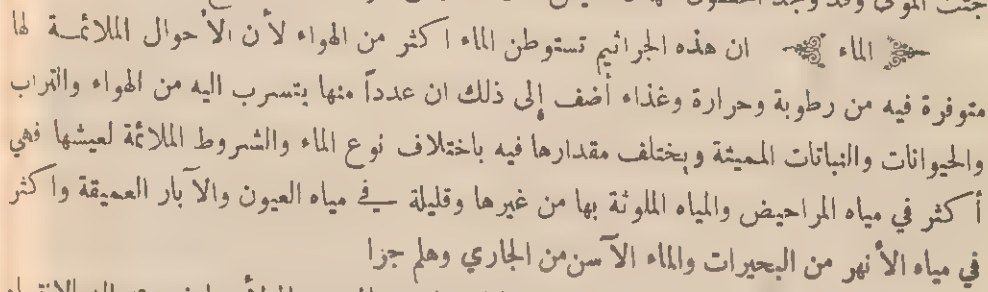 جثث الموتى وقد وجد
الماء ان هذه الجراثيم تستوطن الماء اكثر من الهواء لأن الأحوال الملائمة لها
متوفرة فيه من رطوبة وحرارة وغذاء أضف إلى ذلك ان عدداً منها يتسرب اليه من الهواء والتراب
والحيوانات والنباتات المميتة ويختلف مقدارها فيه باختلاف نوع الماء والشروط الملائمة لعيشها فهي
أكثر في مياه المراحيض والمياه الملوثة بها من غيرها وقليلة في مياه العيون والآبار العميقة واكثر
في مياه الأنهر من البحيرات والماء الآسن من الجاري وهلم جرا